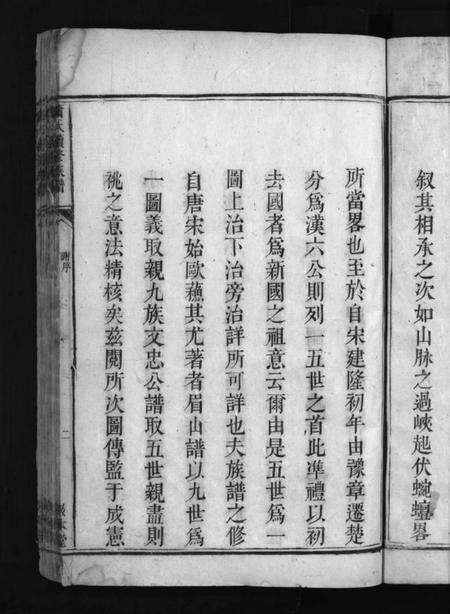 叙其相承之次如山脉之過峽起伏蜿蟺畧
所當畧也至於自宋建隆初年由豫章遷楚
分爲漢六公則列一五世之首此準禮以初
去國者爲新國之祖意云爾由是五世爲一
圖上治下治旁治詳所可詳也夫族譜之修
自唐宋始歐蘓其尤著者眉山譜以九世爲
一圖義取親九族文忠公譜取五世親盡則
祧之意法精核矣兹閱所次圖傳監于成憲
謝序
二